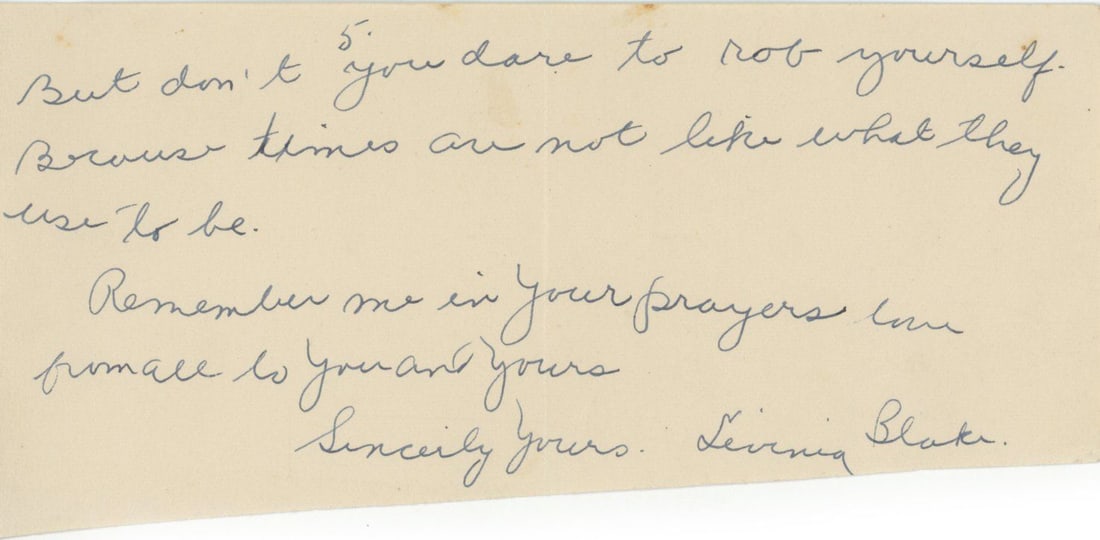 5.
But don't you dare to rob yourself.
Because times are not like what they
use to be.
Remember me in Your prayers love
from all to You and Yours
Sincerly Yours. Levinia Blake.